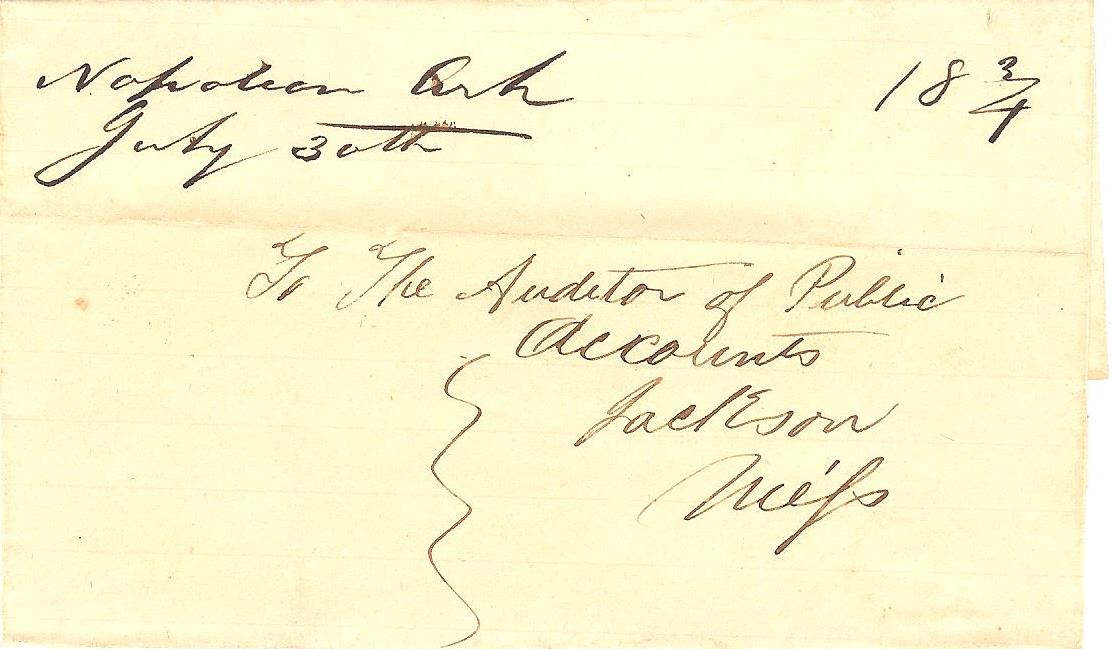 Napoleon Ark 18 3/4
July 30th
To The Auditor of Public
Accounts
Jackson
Miſs